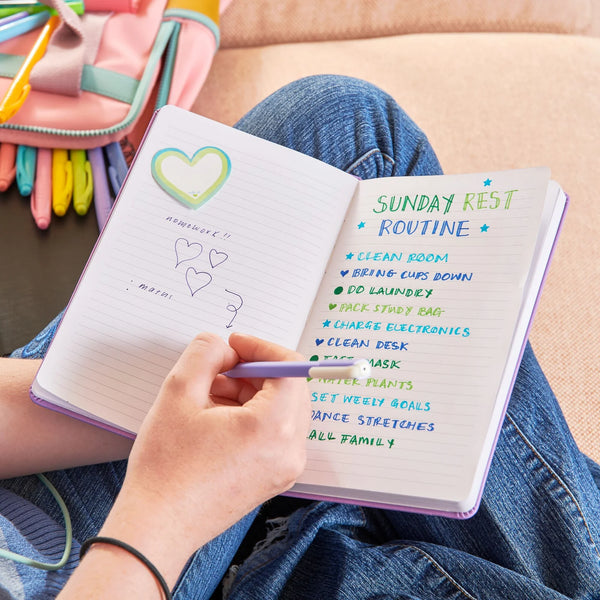 homework!!
: maths
SUNDAY REST
ROUTINE
CLEAN ROOM
BRING CUPS DOWN
DO LAUNDRY
PACK STUDY BAG
CHARGE ELECTRONICS
CLEAN DESK
MASK
WATER PLANTS
SET WEELY GOALS
DANCE STRETCHES
FAMILY